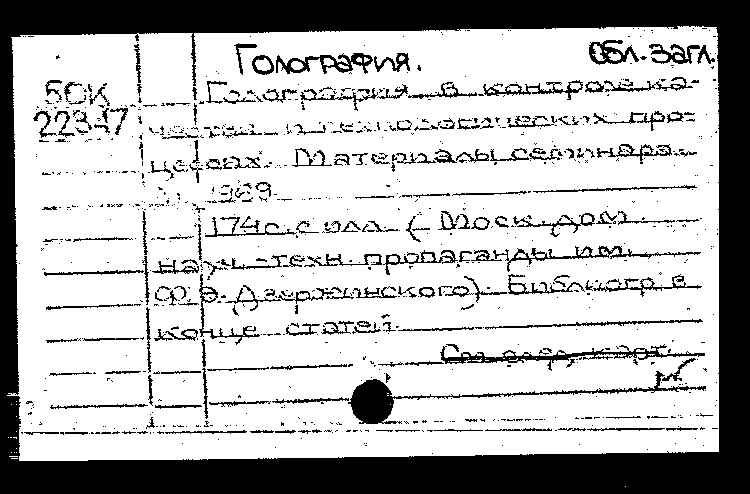 Голография. Обл. загл.
50К Голография в контроле ка-
223-17 чества и технологических про-
цессах. Материалы семинара.
1969
174с. с илл. (Моск. дом
науч.-техн. пропаганды им.
Ф. Э. Дзержинского). Библиогр в
конце статей.
См. след. карт.